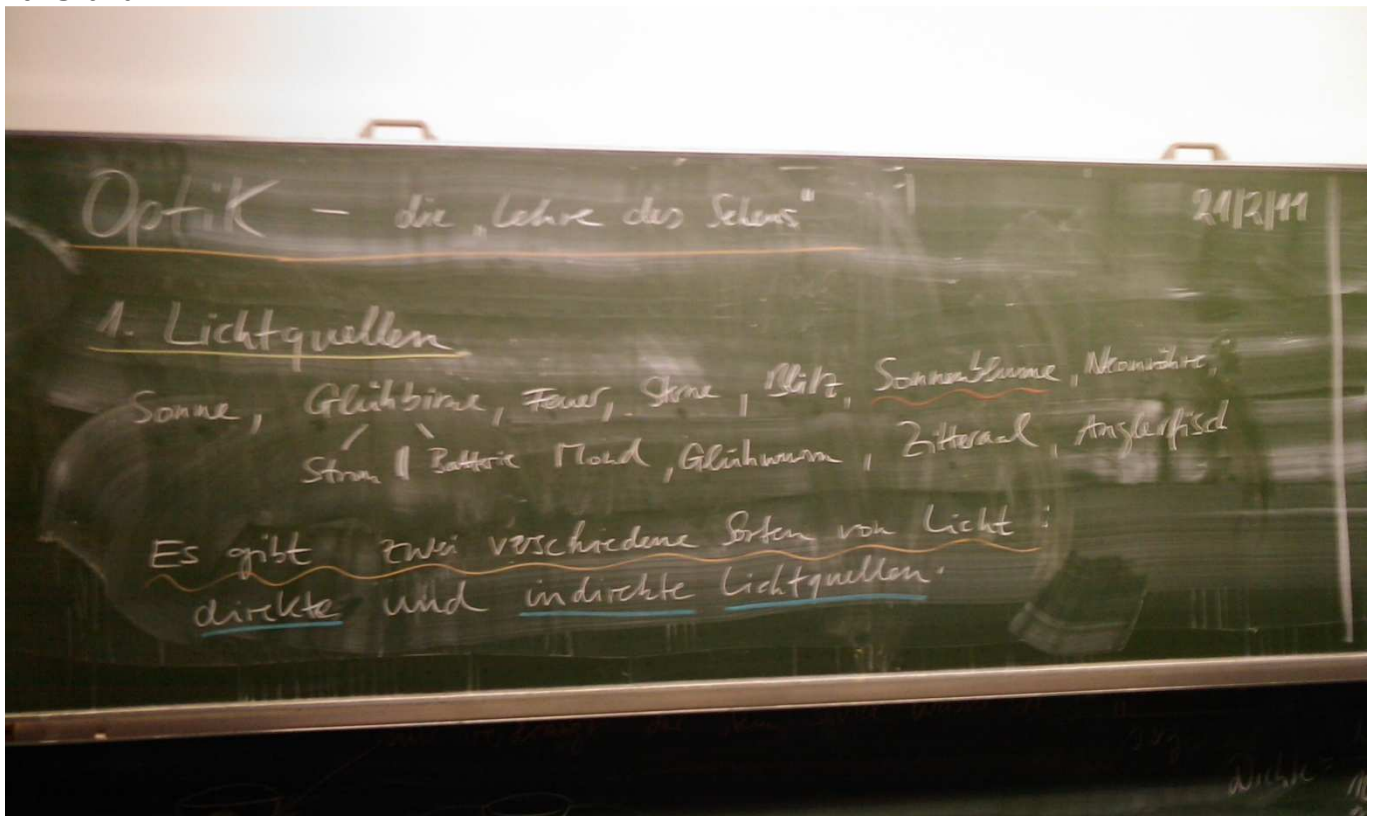 Optik – die „Lehre des Sehens" 21/2/11
1. Lichtquellen
Sonne, Glühbirne, Feuer, Sterne, Blitz, Sonnenblume, Neonröhre,
Strom Batterie Mond, Glühwurm, Zitteraal, Anglerfisch
Es gibt zwei verschiedene Sorten von Licht:
direkte und indirekte Lichtquellen.
Dichte =